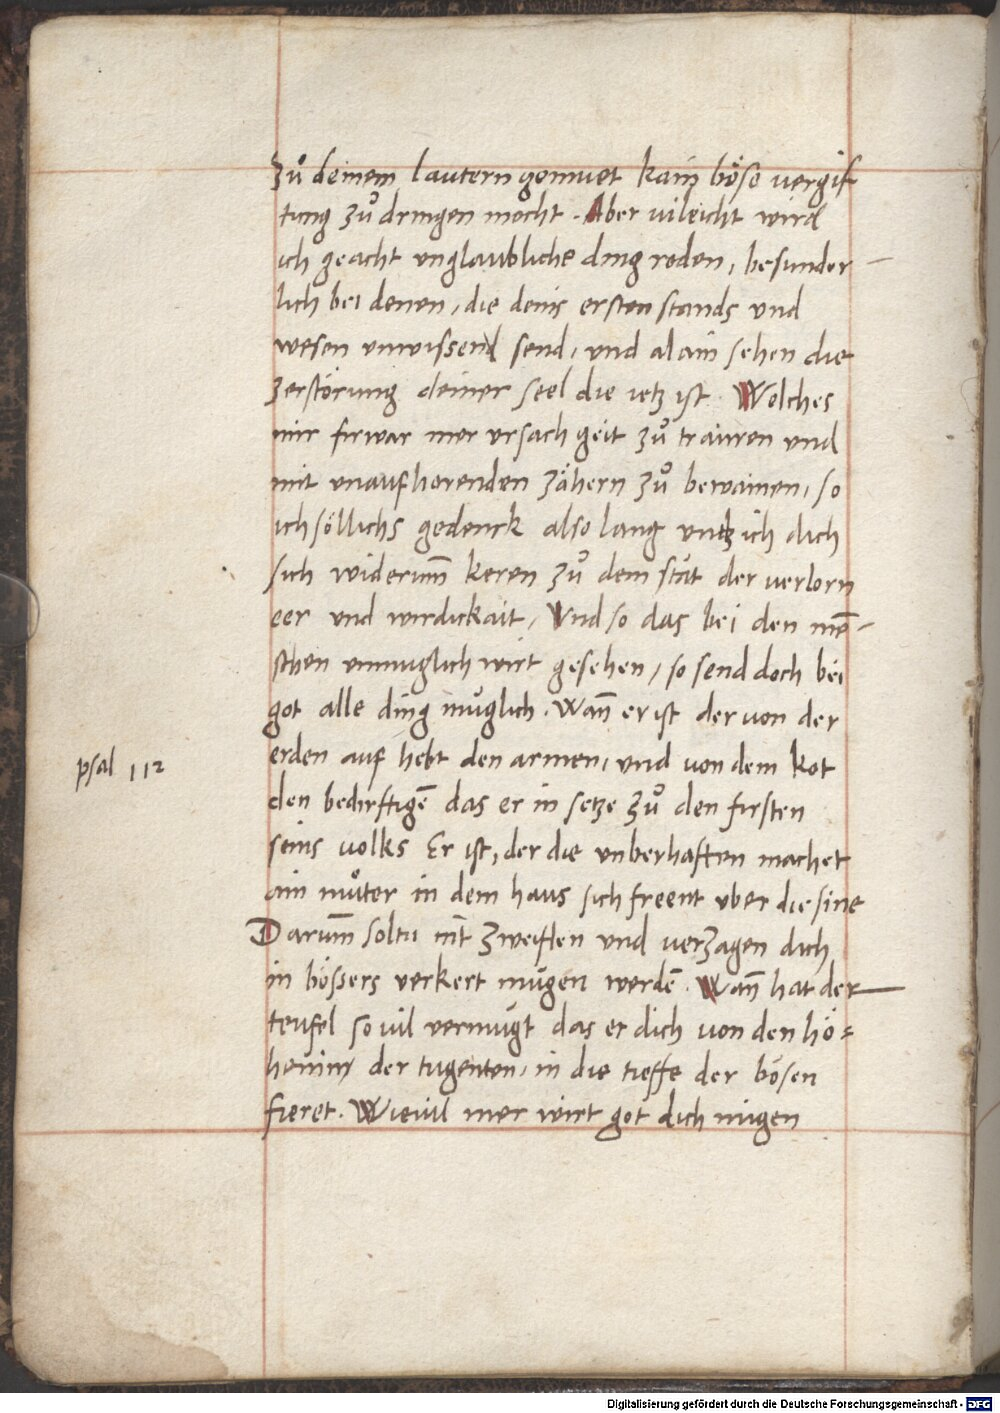 zů deinem lautern gemuet kain böse vergif
tung zů dringen mocht. Aber vileicht wird
ich geacht unglaubliche ding reden, besunder
lich bei denen, die deins ersten stands und
wesen unwissend send, und alain sehen die
zerstörung deiner seel die ietz ist. Welches
mir firwar mer ursach geit zů trauren und
mit unaufhorenden zähern zů bewainen, so
ich söllichs gedenck also lang untz ich dich
sich widerum̄ keren zů dem stat der verlorn
eer und wirdickait, Und so das bei den mē-
schen unmuglich wirt gesehen, so send doch bei
got alle ding muglich. Wan̄ er ist der von der
psal 112
erden auf hebt den armen, und von dem kot
den bedirftigē das er in setze zů den firsten
seins volks Er ist, der die unberhaften machet
ain můter in dem haus sich freent uber die sine
Darum̄ soltu nit zweiflen und verzagen dich
in bössers verkert mugen werdē. Wan̄ hat der
teufel so vil vermugt das er dich von den hö-
henim der tugenten, in die tieffe der bösen
fieret. Wievil mer wirt got dich mugen
Digitalisierung gefördert durch die Deutsche Forschungsgemeinschaft - DFG